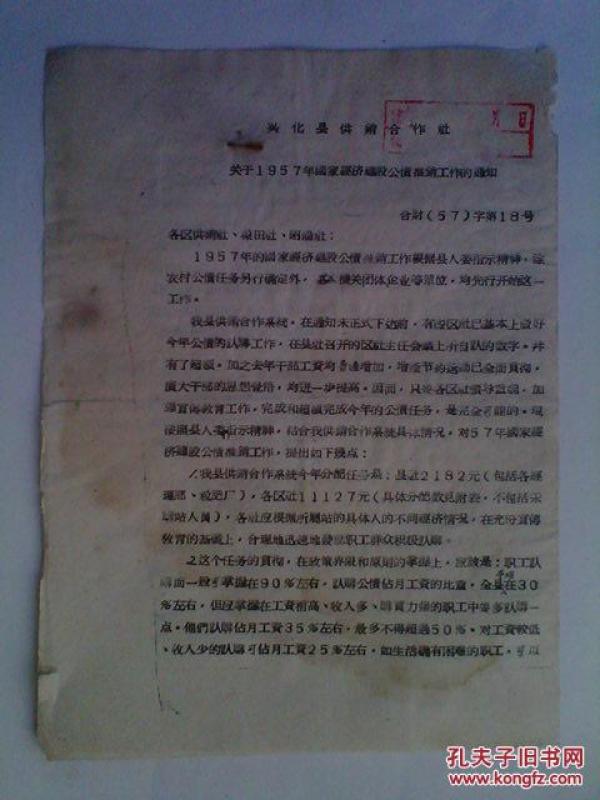 兴化县供销合作社
关于1957年國家經济建設公債推銷工作的通知
合财(57)字第18号
各区供銷社、棉田社、
1957年的國家經济建設公債推銷工作根据县人委指示精神，除
农村公債任务另行确定外，机关团体企业等單位，均先行开始这一
工作。
我县供銷合作系統，在通知未正式下达前，有的区社已基本上做好
今年公債的認購工作，在县社召开的区社主任会議上有自認的数字，并
有了超額。加之去年干部工資均普遍增加，增产节約运动已全面貫彻，
廣大干部的思想覚悟，均進一步提高。因而，只要各区社領导重視，加
强宣傳教育工作，完成和超額完成今年的公債任务，是完全可能的。現
按照县人委指示精神，結合我供銷合作系統具体情况，对57年國家經
济建設公債推銷工作，提出如下幾点：
1.我县供銷合作系統今年分配任务是：县社2182元(包括各經
理部、厂)，各区社11127元(具体分配数見附表，不包括采
購站人員)，各社应根据所屬站的具体人的不同經济情况，在充分宣傳
教育的基础上，合理地迅速地發动职工群众积极認購。
2.这个任务的貫彻，在政策界限和原則的掌握上，应該是：职工認
購面一般可掌握在90%左右，認購公債佔月工資的比重，全县在30
%左右，但应掌握在工資稍高、收入多、購買力强的职工中等多認購一
点。他們認購佔月工資35%左右，最多不得超过50%。对工資較低、
收入少的認購可佔月工資25%左右，如生活确有困难的职工，可以
孔夫子旧书网
www.kongfz.com